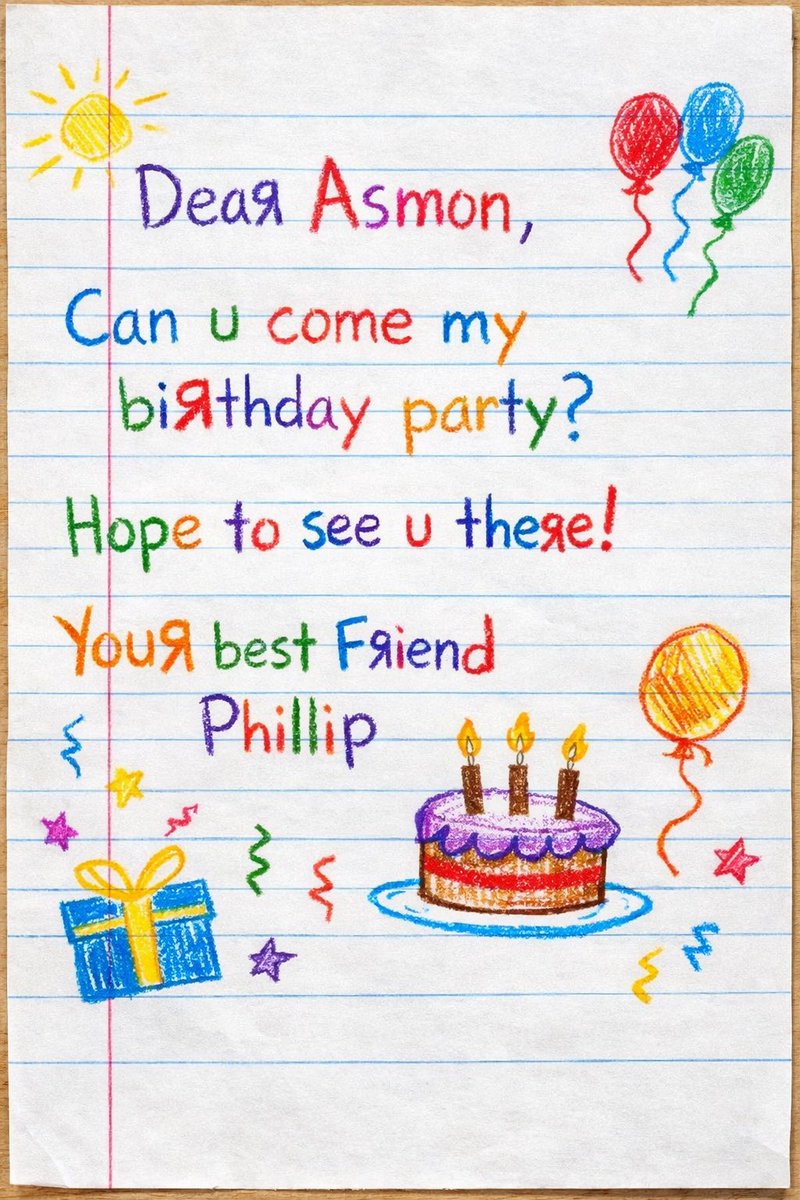 Deaя Asmon,
Can u come my
biЯthday party?
Hope to see u theяe!
YouЯ best Fяiend
Phillip